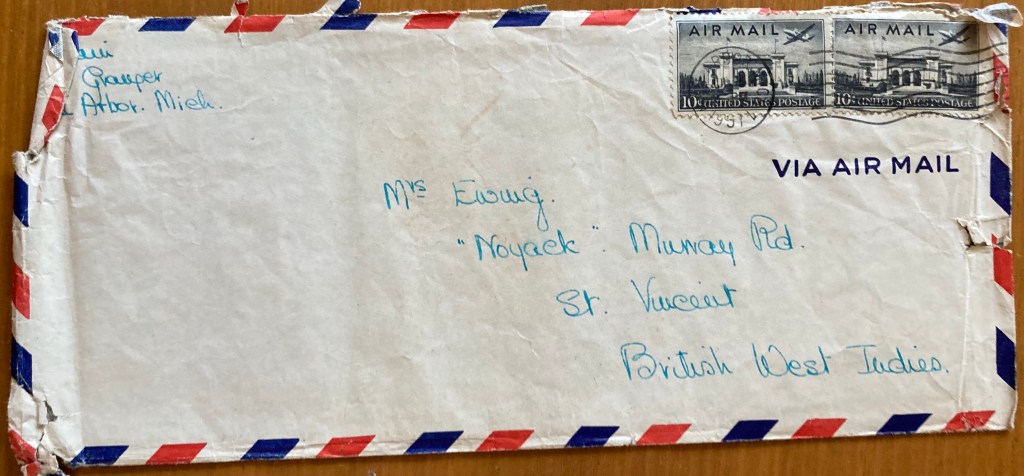 Granger
Arbor. Mich.
AIR MAIL
10¢ UNITED STATES POSTAGE
AIR MAIL
10¢ UNITED STATES POSTAGE
VIA AIR MAIL
Mrs Ewing.
"Noyack" Murray Rd.
St. Vincent
British West Indies.